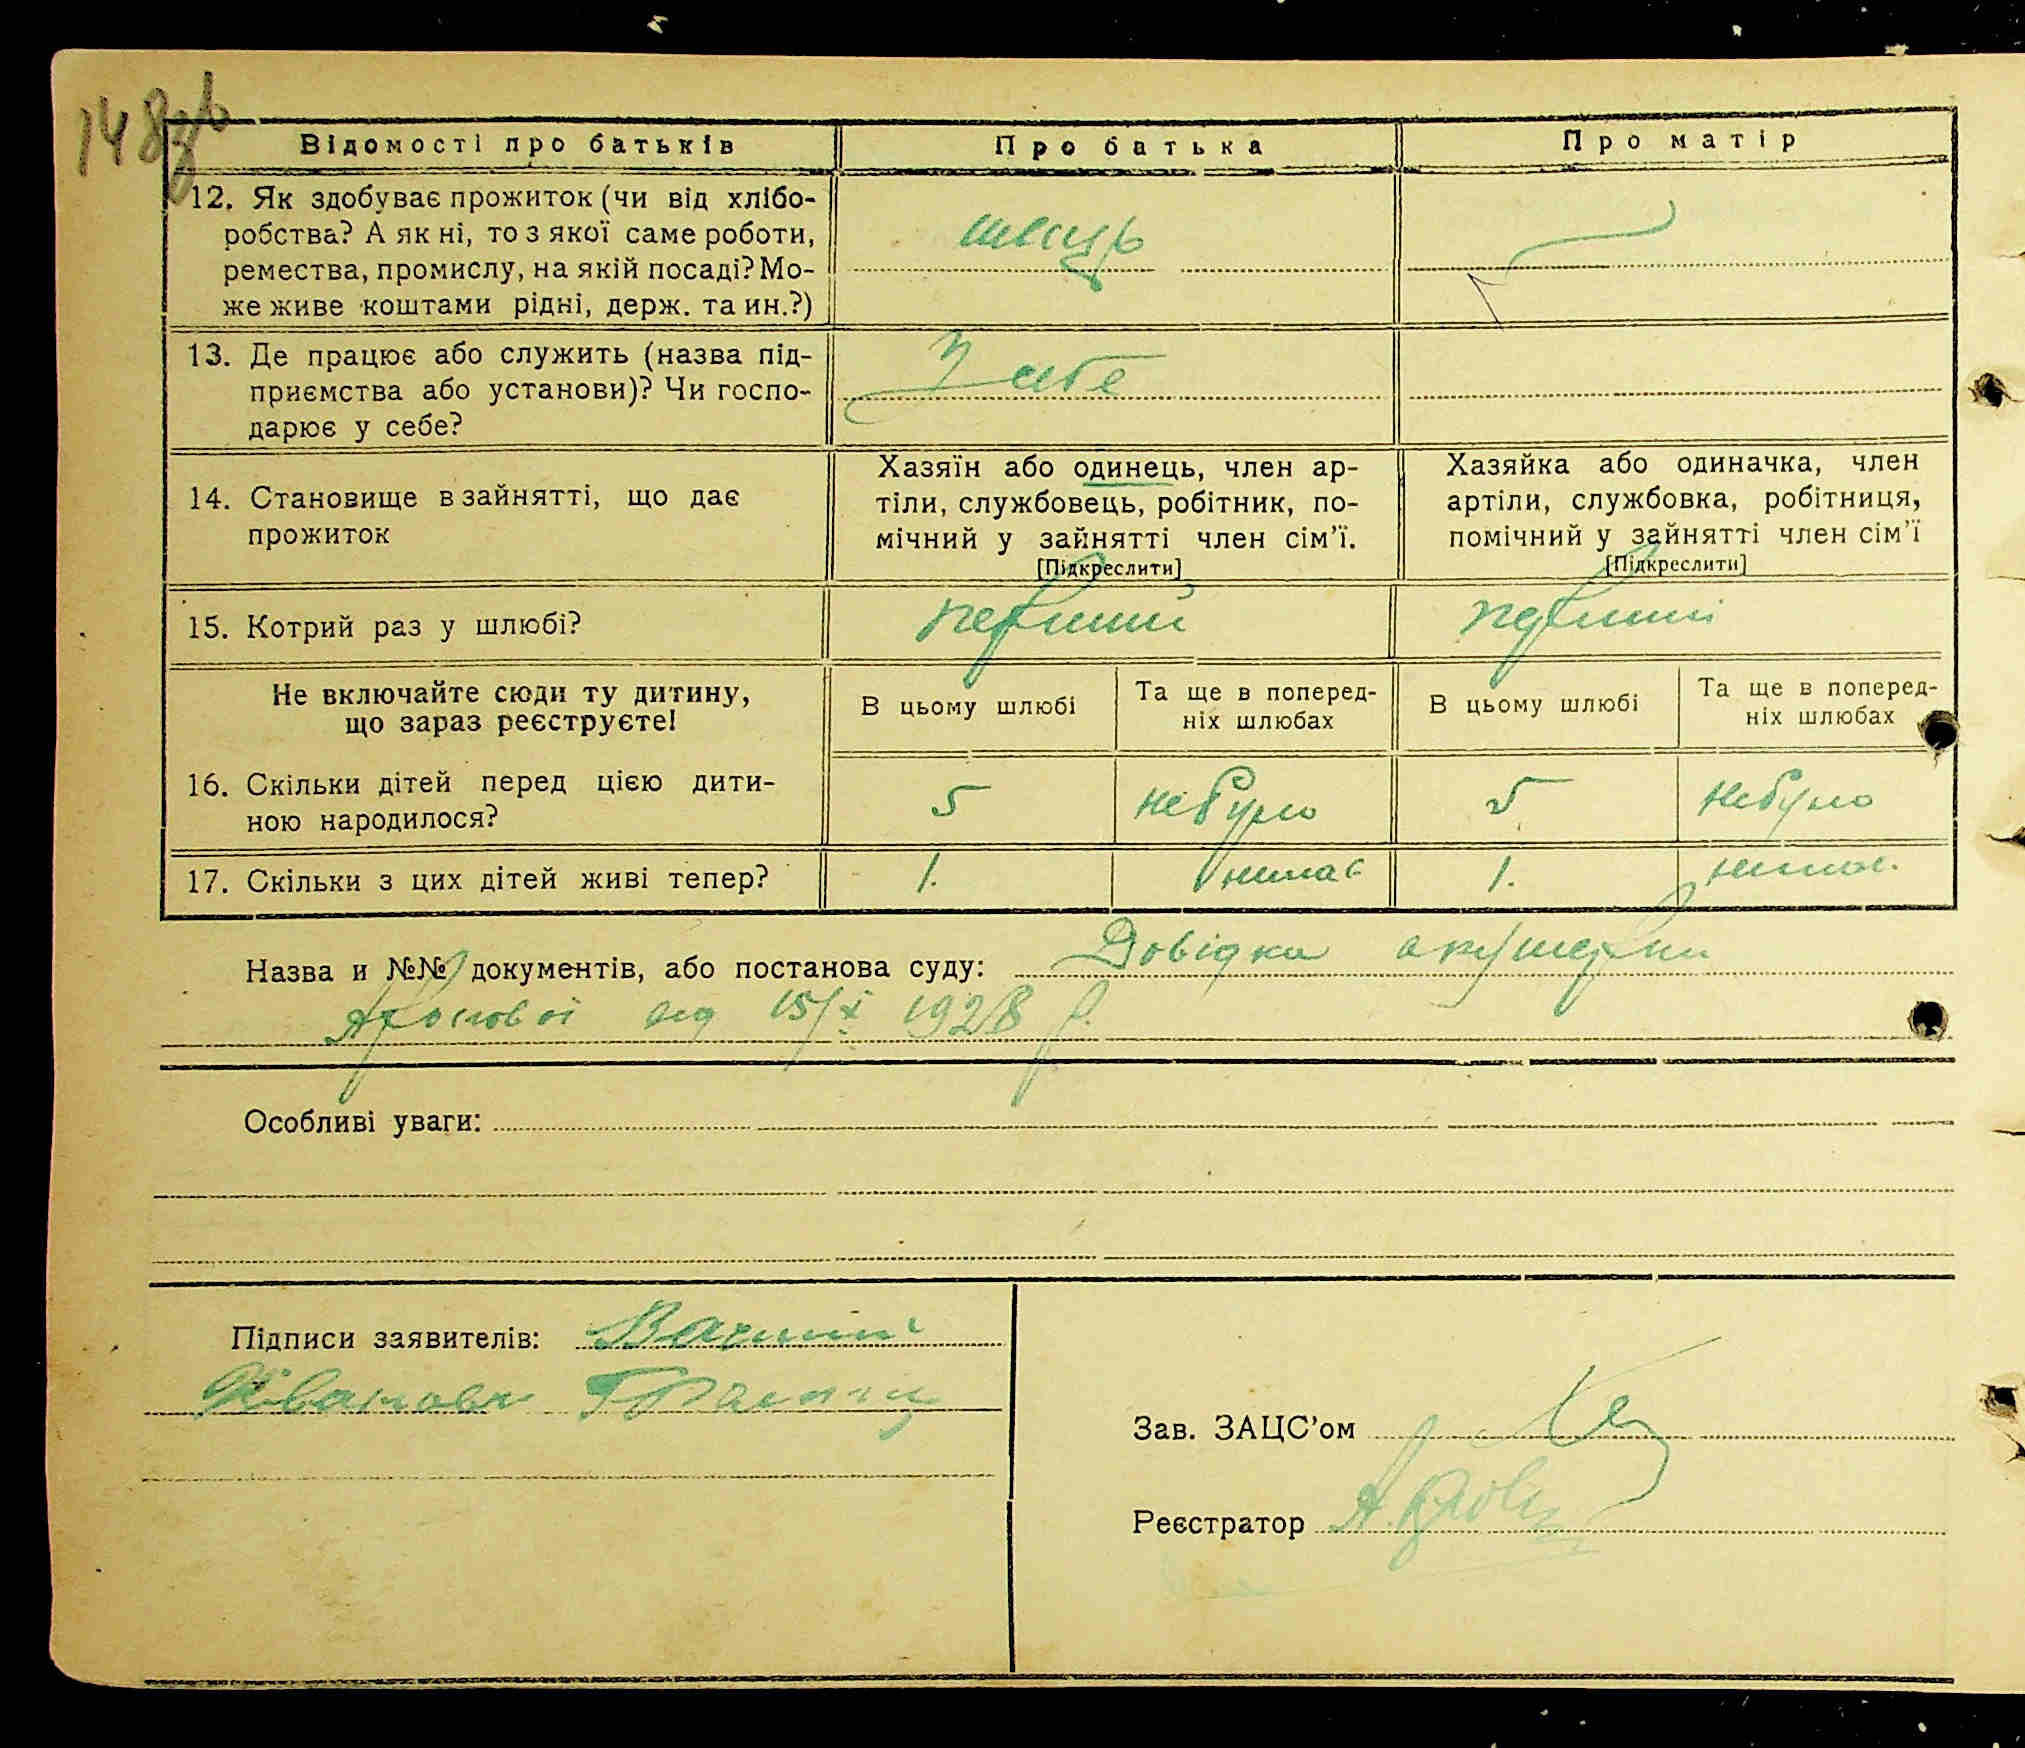 148 зв
Відомості про батьків
Про батька
Про матір
12. Як здобуває прожиток (чи від хлібо-
робства? А як ні, то з якої саме роботи,
ремества, промислу, на якій посаді? Мо-
же живе коштами рідні, держ. та ин.?)
швець
13. Де працює або служить (назва під-
приємства або установи)? Чи госпо-
дарює у себе?
У себе
14. Становище в зайнятті, що дає
прожиток
Хазяїн або одинець, член ар-
тіли, службовець, робітник, по-
мічний у зайнятті член сім'ї.
[Підкреслити]
Хазяйка або одиначка, член
артіли, службовка, робітниця,
помічний у зайнятті член сім'ї
[Підкреслити]
15. Котрий раз у шлюбі?
перший
перший
Не включайте сюди ту дитину,
що зараз реєструєте!
В цьому шлюбі
Та ще в поперед-
ніх шлюбах
В цьому шлюбі
Та ще в поперед-
ніх шлюбах
16. Скільки дітей перед цією дити-
ною народилося?
5
небуло
5
небуло
17. Скільки з цих дітей живі тепер?
1.
немає
1.
немає.
Назва и №№ документів, або постанова суду: Довідка акушерки
від 15/X 1928 р.
Особливі уваги:
Підписи заявителів:
Зав. ЗАЦС'ом
Реєстратор